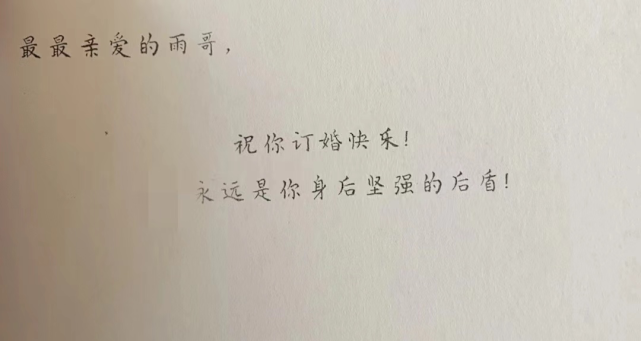 最最亲爱的雨哥，
祝你订婚快乐！
永远是你身后坚强的后盾！